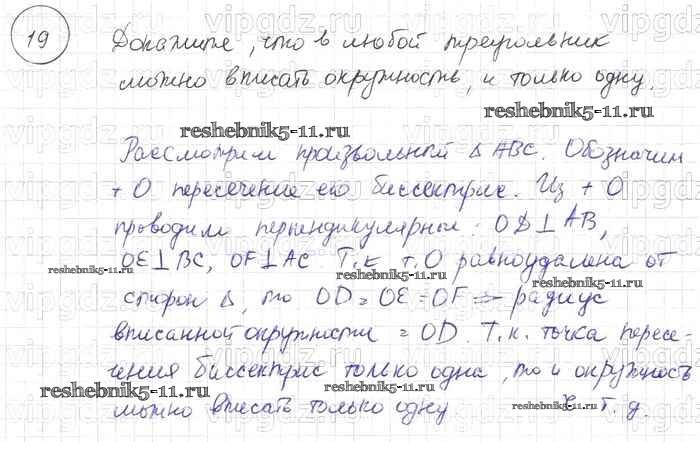 19
Докажите, что в любой треугольник
можно вписать окружность, и только одну.
reshebnik5-11.ru
reshebnik5-11.ru
Рассмотрим произвольный Δ ABC. Обозначим
т O пересечение его биссектрис. Из т O
проводим перпендикуляры: OD⊥AB,
OE⊥BC, OF⊥AC. Т.к т.O равноудалена от
reshebnik5-11.ru
reshebnik5-11.ru
сторон Δ, то OD=OE=OF ⇒ радиус
вписанной окружности = OD. Т.к. точка пересе-
чения биссектрис только одна, то и окружность
reshebnik5-11.ru
reshebnik5-11.ru
можно вписать только одну ч. т. д.